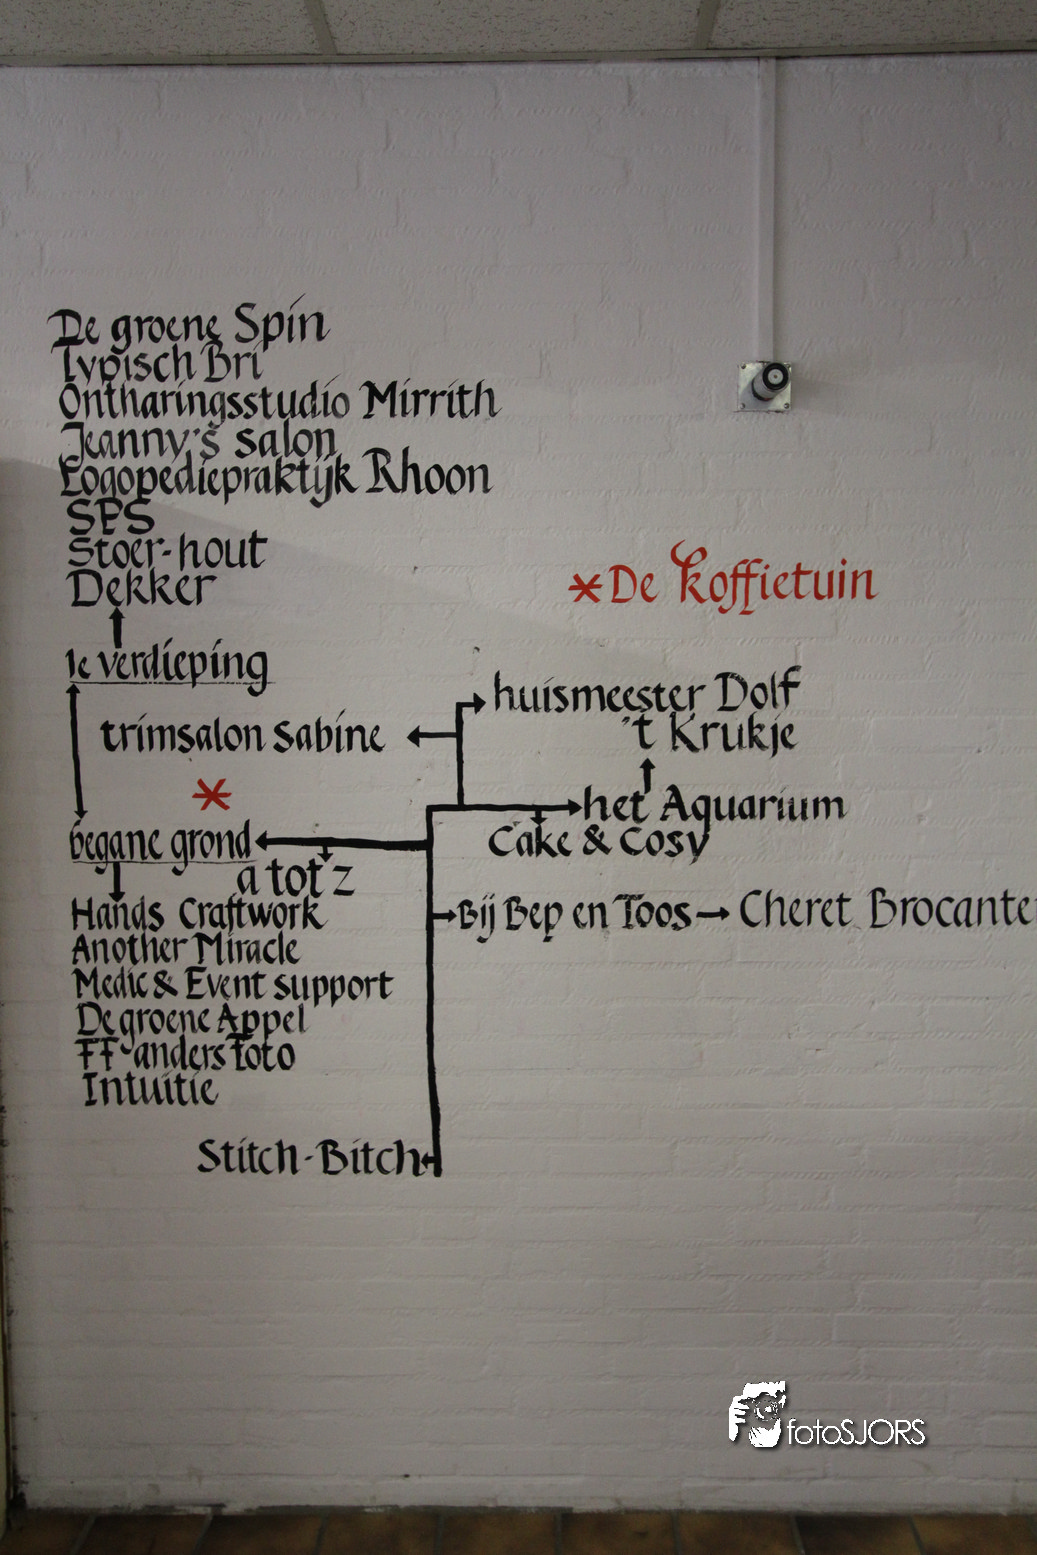 De groene Spin
Typisch Bri
Ontharingsstudio Mirrith
Jeanny's salon
Logopediepraktijk Rhoon
SPS
Stoer-hout
Dekker
* De Koffietuin
1e verdieping
huismeester Dolf
trimsalon Sabine
't Krukje
*
het Aquarium
begane grond
Cake & Cosy
a tot z
Hands Craftwork
Bij Bep en Toos → Cheret Brocante
Another Miracle
Medic & Event support
De groene Appel
FF-anders foto
Intuitie
Stitch-Bitch
fotoSJORS